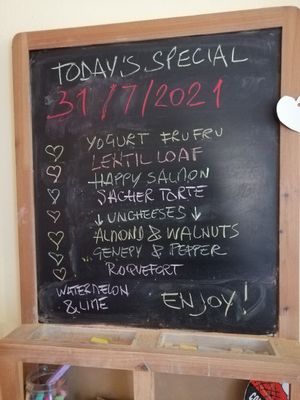 TODAY'S SPECIAL
31/7/2021
YOGURT FRUFRU
LENTIL LOAF
HAPPY SALMON
SACHER TORTE
↓ UNCHEESES ↓
ALMOND & WALNUTS
GENEPY & PEPPER
ROQUEFORT
WATERMELON
& LIME
ENJOY!